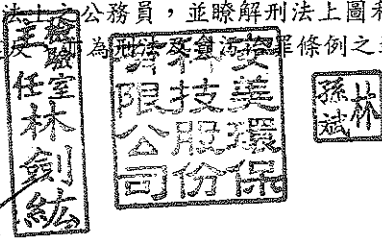 法上之公務員，並瞭解刑法上圖
為刑法及貪污治罪條例之
檢驗室
主任
林劍紘
美環保
科技股份
有限公司
林
孫斌